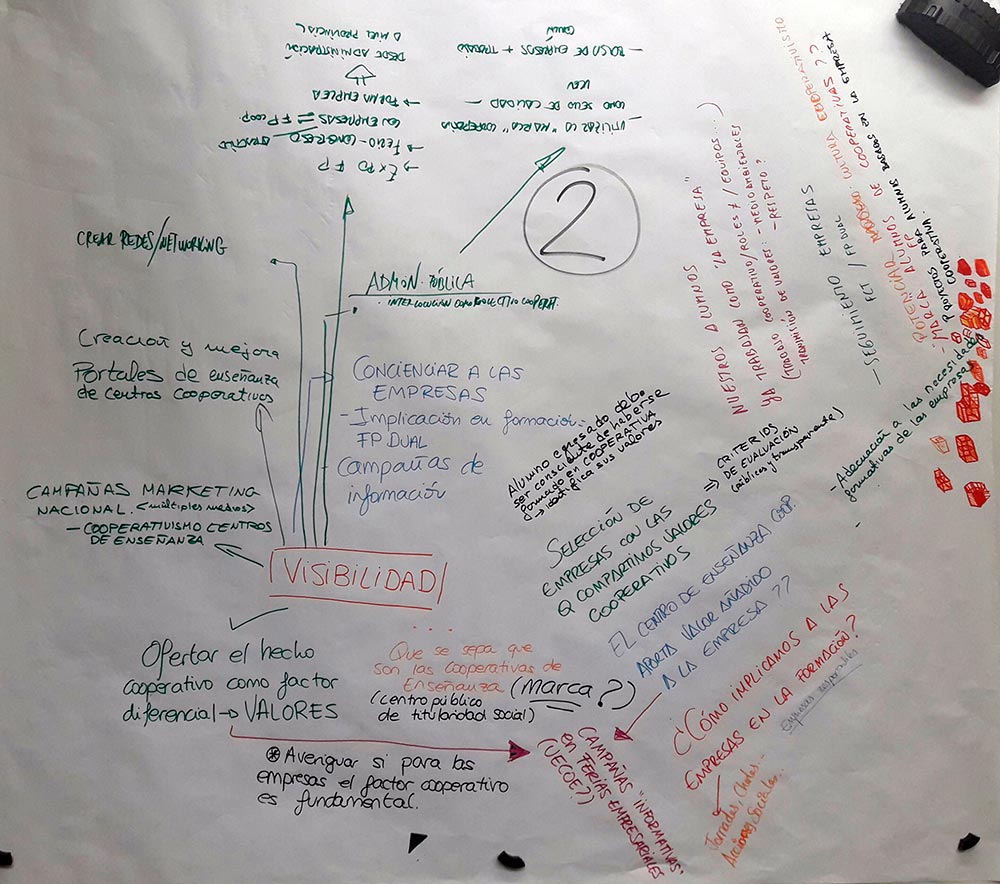 → EXPO FP
→ FERIA - CONGRESO
CON EMPRESAS = FP COOP
→ FORUM EMPLEA
DESDE ADMINISTRACIÓN
A NIVEL PROVINCIAL
— UTILIZAR LA "MARCA" COOPERATIVA
COMO SELLO DE CALIDAD —
— BOLSA DE EMPRESAS + TRABAJO
COMÚN
2
CREAR REDES/NETWORKING
ADMON. PÚBLICA
Creación y mejora
Portales de enseñanza
de centros cooperativos
CONCIENCIAR A LAS
EMPRESAS
- Implicación en formación.
FP DUAL
Campañas de
información
CAMPAÑAS MARKETING
NACIONAL. <múltiples medios>
- COOPERATIVISMO CENTROS
DE ENSEÑANZA
VISIBILIDAD
...
Ofertar el hecho
cooperativo como factor
diferencial → VALORES
Que se sepa que
son las Cooperativas de
Enseñanza (Marca?)
(centro público
de titularidad social)
* Averiguar si para las
empresas el factor cooperativo
es fundamental.
CAMPAÑAS "INFORMATIVAS"
en FERIAS EMPRESARIALES
(UECOE?)
¿CÓMO IMPLICAMOS A LAS
EMPRESAS EN LA FORMACIÓN?
Empresas responsables
Jornadas, Charlas...
Acciones Sociales...
EL CENTRO DE ENSEÑANZA COOP.
APORTA VALOR AÑADIDO
A LA EMPRESA ??
SELECCIÓN DE
EMPRESAS CON LAS
Q COMPARTIMOS VALORES
COOPERATIVOS
⇒ CRITERIOS
DE EVALUACIÓN
(públicos y transparentes)
Alumno egresado debe
ser consciente de haberse
formado en COOPERATIVA
→ identifica sus valores
NUESTROS ALUMNOS
YA TRABAJAN COMO "LA EMPRESA"
(TRABAJO COOPERATIVO/ROLES/EQUIPOS...)
TRANSMISIÓN DE VALORES: - MEDIOAMBIENTALES
- RESPETO?
— SEGUIMIENTO EMPRESAS
FCT / FP DUAL
POTENCIAR
CULTURA COOPERATIVISTA
- MARCA ALUMNOS DE COOPERATIVAS ??
FP
- PROYECTOS PARA ALUMNOS BASADOS EN LA EMPRESA
COOPERATIVA
- Adecuación a las necesidades
formativas de las empresas